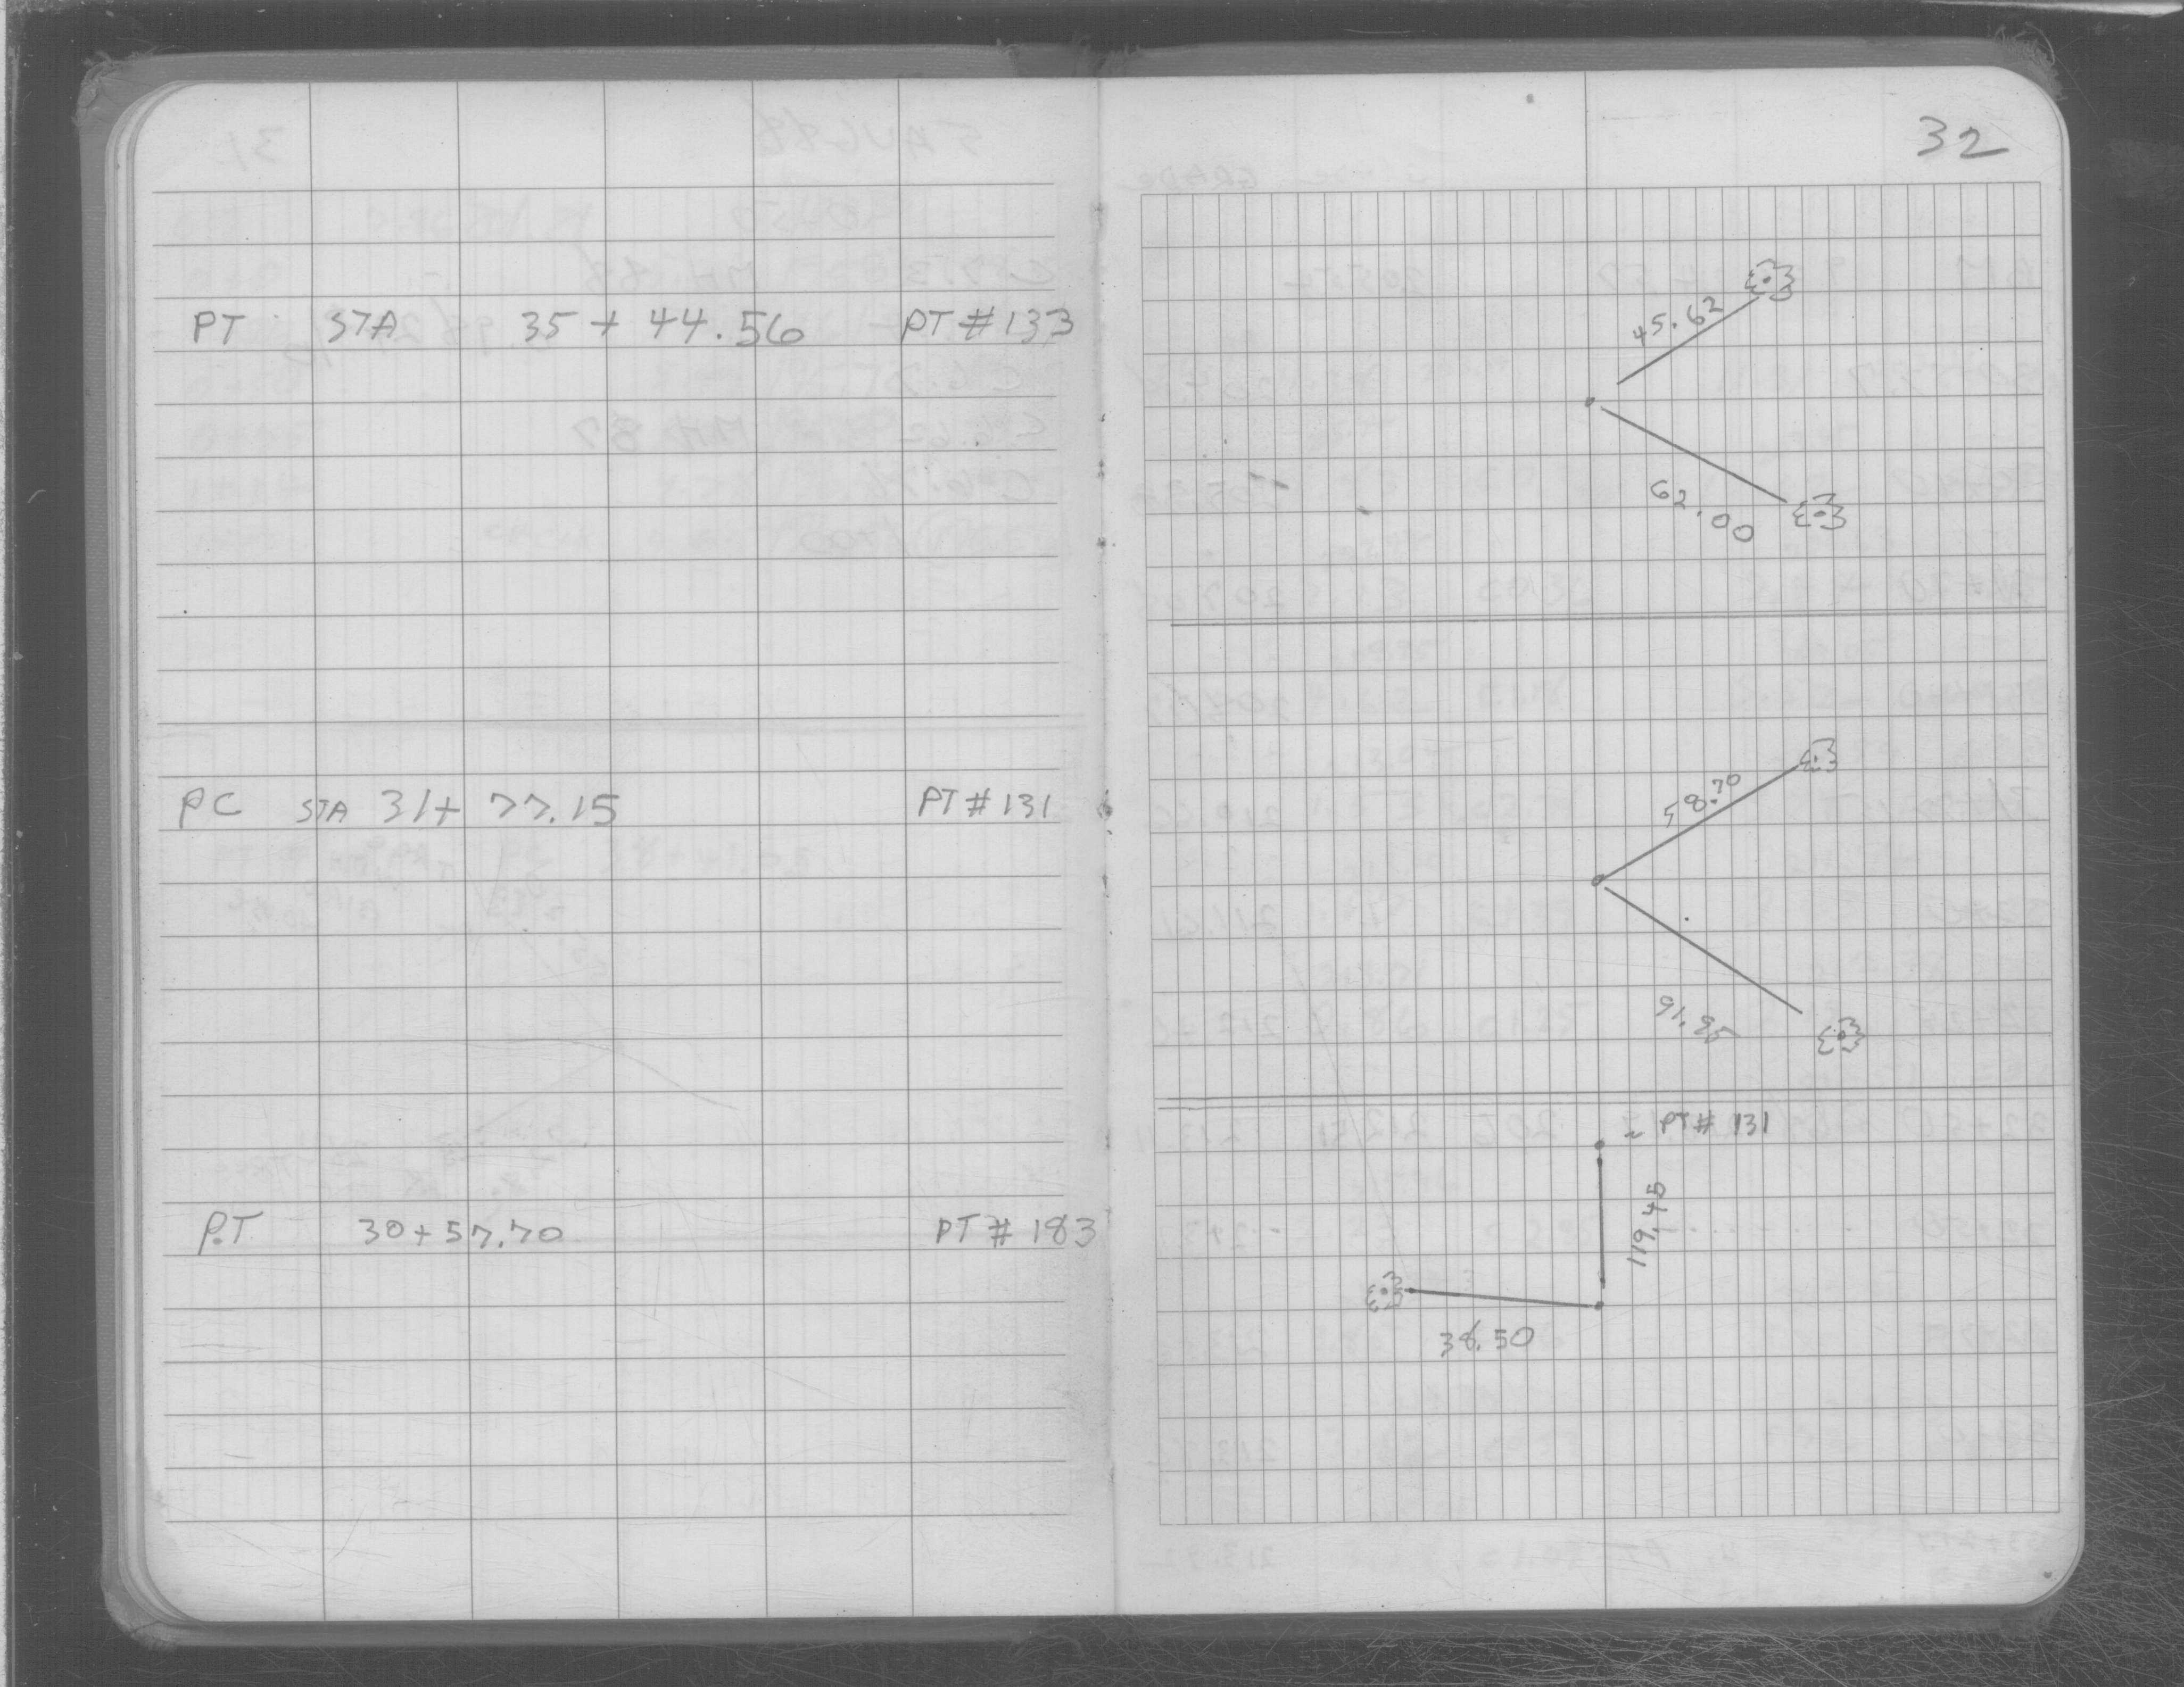 32
PT STA 35 + 44.56 PT # 133
45.62
62.00
PC STA 31+ 77.15 PT # 131
58.70
91.95
~ PT # 131
119.45
P.T 30+57.70 PT # 183
38.50